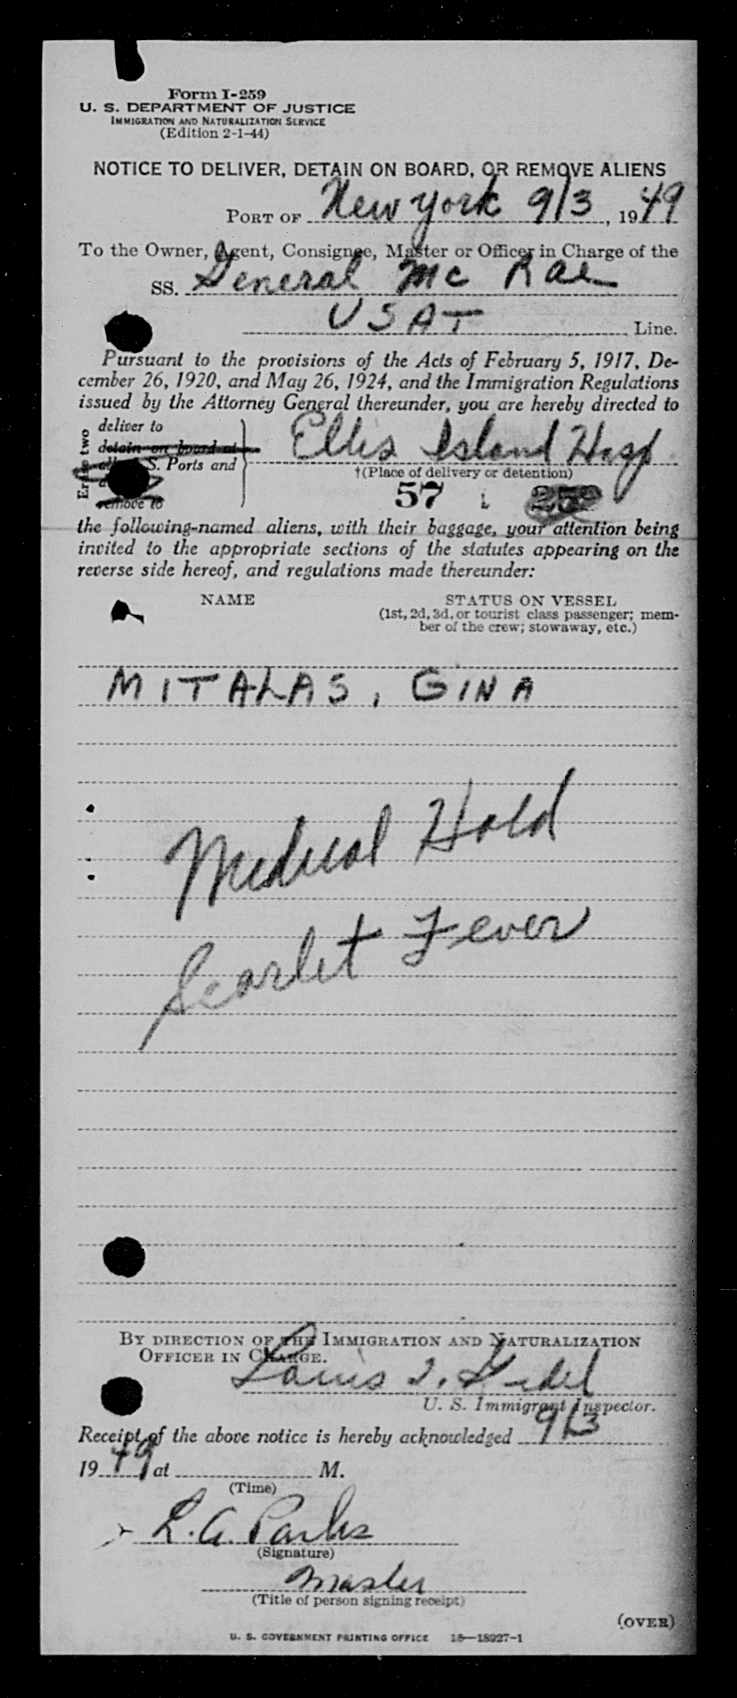 Form I-259
U. S. DEPARTMENT OF JUSTICE
IMMIGRATION AND NATURALIZATION SERVICE
(Edition 2-1-44)
NOTICE TO DELIVER, DETAIN ON BOARD, OR REMOVE ALIENS
PORT OF New York 9/3, 1949
To the Owner, Agent, Consignee, Master or Officer in Charge of the
SS. General Mc Rae
USAT Line.
Pursuant to the provisions of the Acts of February 5, 1917, De-
cember 26, 1920, and May 26, 1924, and the Immigration Regulations
issued by the Attorney General thereunder, you are hereby directed to
deliver to
detain on board at
S. Ports and
remove to
two
Ellis Island Hosp
†(Place of delivery or detention)
57 259
the following-named aliens, with their baggage, your attention being
invited to the appropriate sections of the statutes appearing on the
reverse side hereof, and regulations made thereunder:
NAME STATUS ON VESSEL
(1st, 2d, 3d, or tourist class passenger; mem-
ber of the crew; stowaway, etc.)
MITALAS, GINA
Medical Hold
Scarlet Fever
BY DIRECTION OF THE IMMIGRATION AND NATURALIZATION
OFFICER IN CHARGE.
Louis
U. S. Immigrant Inspector.
Receipt of the above notice is hereby acknowledged 9/3
1949 at M.
(Time)
L. A. Parks
(Signature)
Master
(Title of person signing receipt)
(OVER)
U. S. GOVERNMENT PRINTING OFFICE 16—18927-1